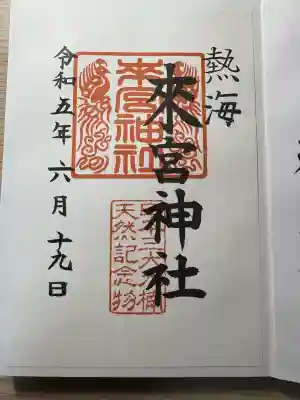 熱海
來宮神社
令和五年六月十九日
來宮神社
天然記念物